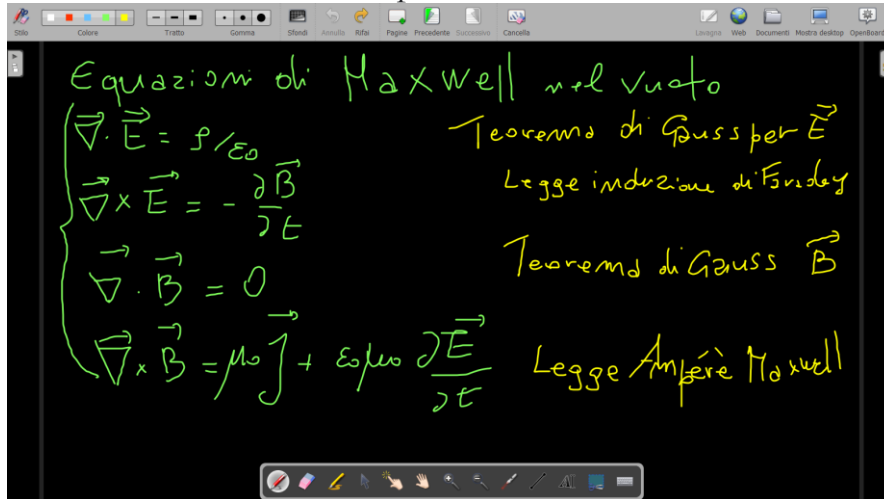 Stilo Colore Tratto Gomma Sfondi Annulla Rifai Pagine Precedente Successivo Cancella Lavagna Web Documenti Mostra desktop OpenBoard
Equazioni di Maxwell nel vuoto
∇⃗ · E⃗ = ρ/ε₀ Teorema di Gauss per E⃗
∇⃗ × E⃗ = - ∂B⃗/∂t Legge induzione di Faraday
∇⃗ · B⃗ = 0 Teorema di Gauss B⃗
∇⃗ × B⃗ = μ₀ J⃗ + ε₀μ₀ ∂E⃗/∂t Legge Ampérè Maxwell